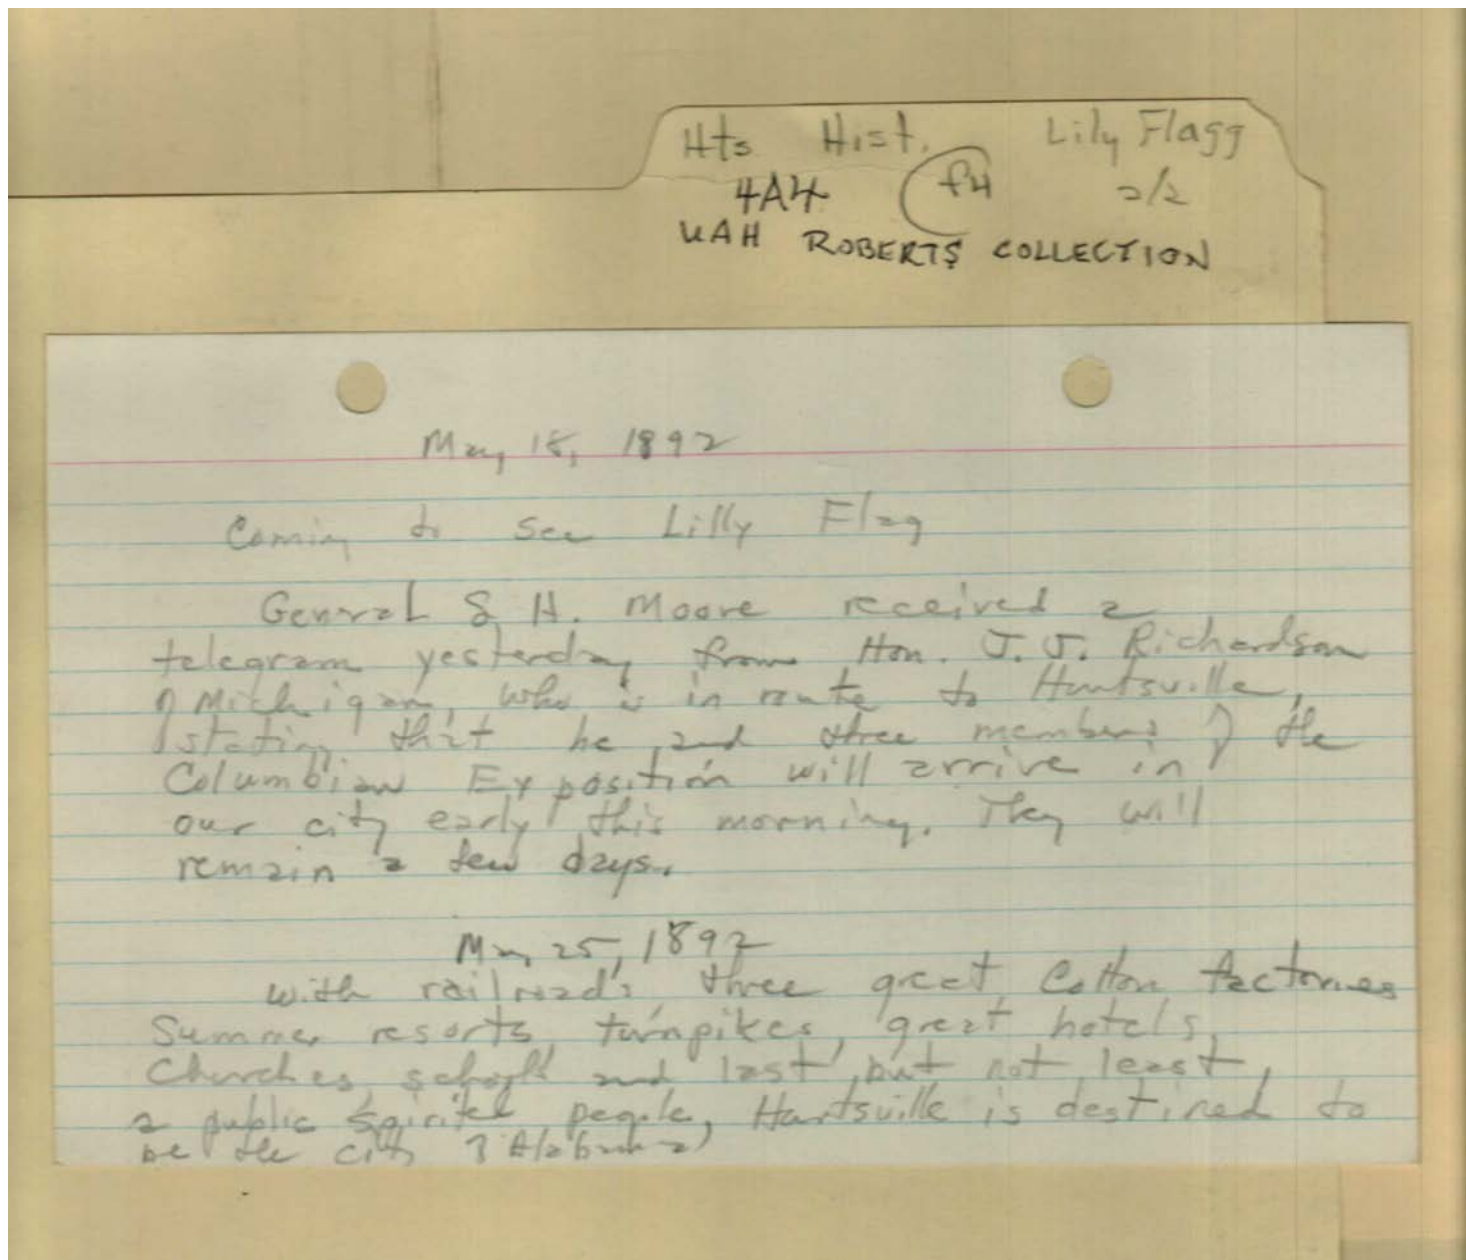 Hts Hist. Lily Flagg
4A4 f4 2/2
UAH ROBERTS COLLECTION
May 18, 1892
Coming to see Lilly Flag
General S H. Moore received a
telegram yesterday from Hon. J. J. Richardson
of Michigan, who is in route to Huntsville,
stating that he and three members of the
Columbian Exposition will arrive in
our city early this morning. They will
remain a few days.
May 25, 1892
with railroads, three great Cotton factories
Summer resorts, turnpikes, great hotels,
Churches, schools and last, but not least,
a public spirited people, Huntsville is destined to
be the city of Alabama